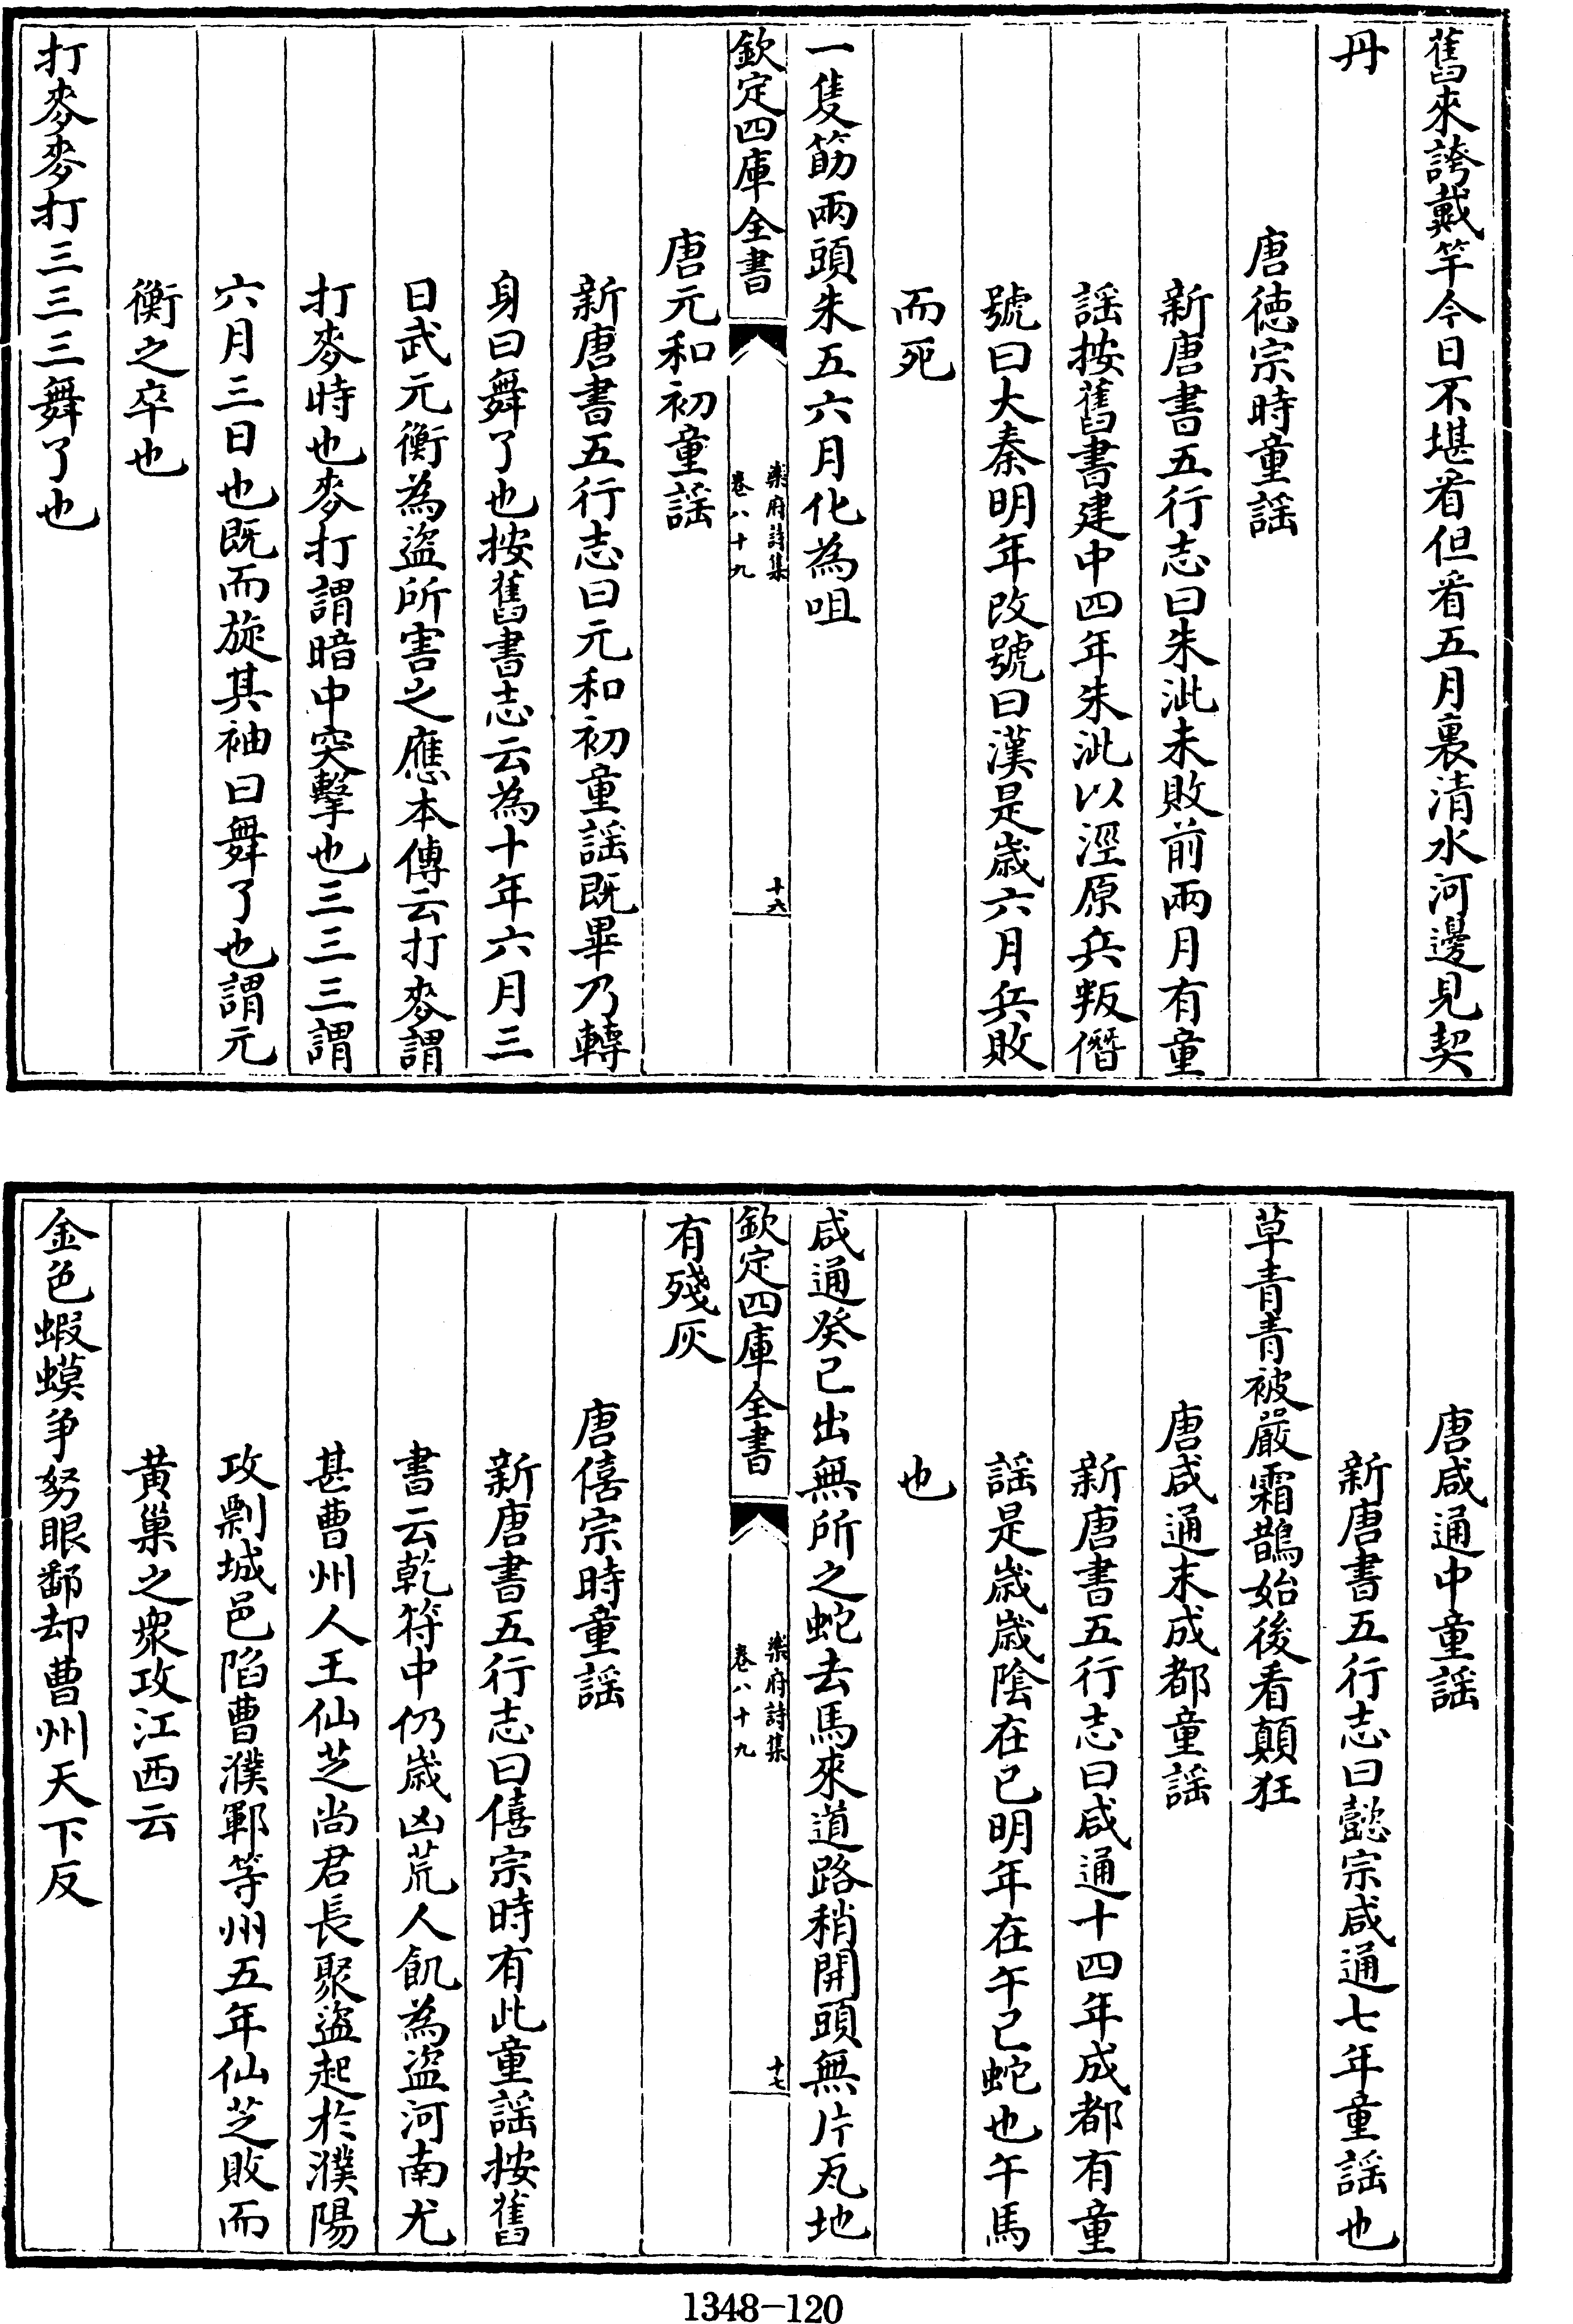 舊來誇戴竿今日不堪看但看五月裏清水河邊見契
丹
唐徳宗時童謡
新唐書五行志曰朱泚未敗前兩月有童
謡按舊書建中四年朱泚以涇原兵叛僭
號曰大秦明年改號曰漢是歳六月兵敗
而死
一隻筯兩頭朱五六月化為咀
欽定四庫全書
樂府詩集
卷八十九
十六
唐元和初童謡
新唐書五行志曰元和初童謡既畢乃轉
身曰舞了也按舊書志云為十年六月三
日武元衡為盗所害之應本傳云打麥謂
打麥時也麥打謂暗中突擊也三三三謂
六月三日也既而旋其袖曰舞了也謂元
衡之卒也
打麥麥打三三三舞了也
唐咸通中童謡
新唐書五行志曰懿宗咸通七年童謡也
草青青被嚴霜鵲始後看顛狂
唐咸通末成都童謡
新唐書五行志曰咸通十四年成都有童
謡是歳歳隂在巳明年在午巳蛇也午馬
也
咸通癸巳出無所之蛇去馬來道路稍開頭無片瓦地
欽定四庫全書
樂府詩集
卷八十九
十七
有殘灰
唐僖宗時童謡
新唐書五行志曰僖宗時有此童謡按舊
書云乾符中仍歳凶荒人飢為盗河南尤
甚曹州人王仙芝尚君長聚盗起於濮陽
攻剽城邑陷曹濮鄆等州五年仙芝敗而
黄巢之衆攻江西云
金色蝦蟆争努眼鄱却曹州天下反
1348-120